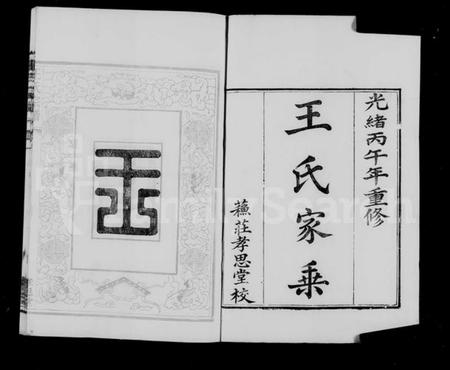 光緒丙午年重修
王氏家乘
蘓莊孝思堂校
王
FamilySearch